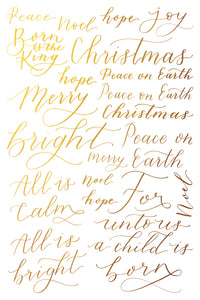 Peace Noel hope joy
Born is the King
Christmas
hope Peace on Earth
Merry Peace on Earth
Christmas
bright Peace on Earth
merry
All is Calm
Noel
hope
For unto us a child is born
Noel
All is bright